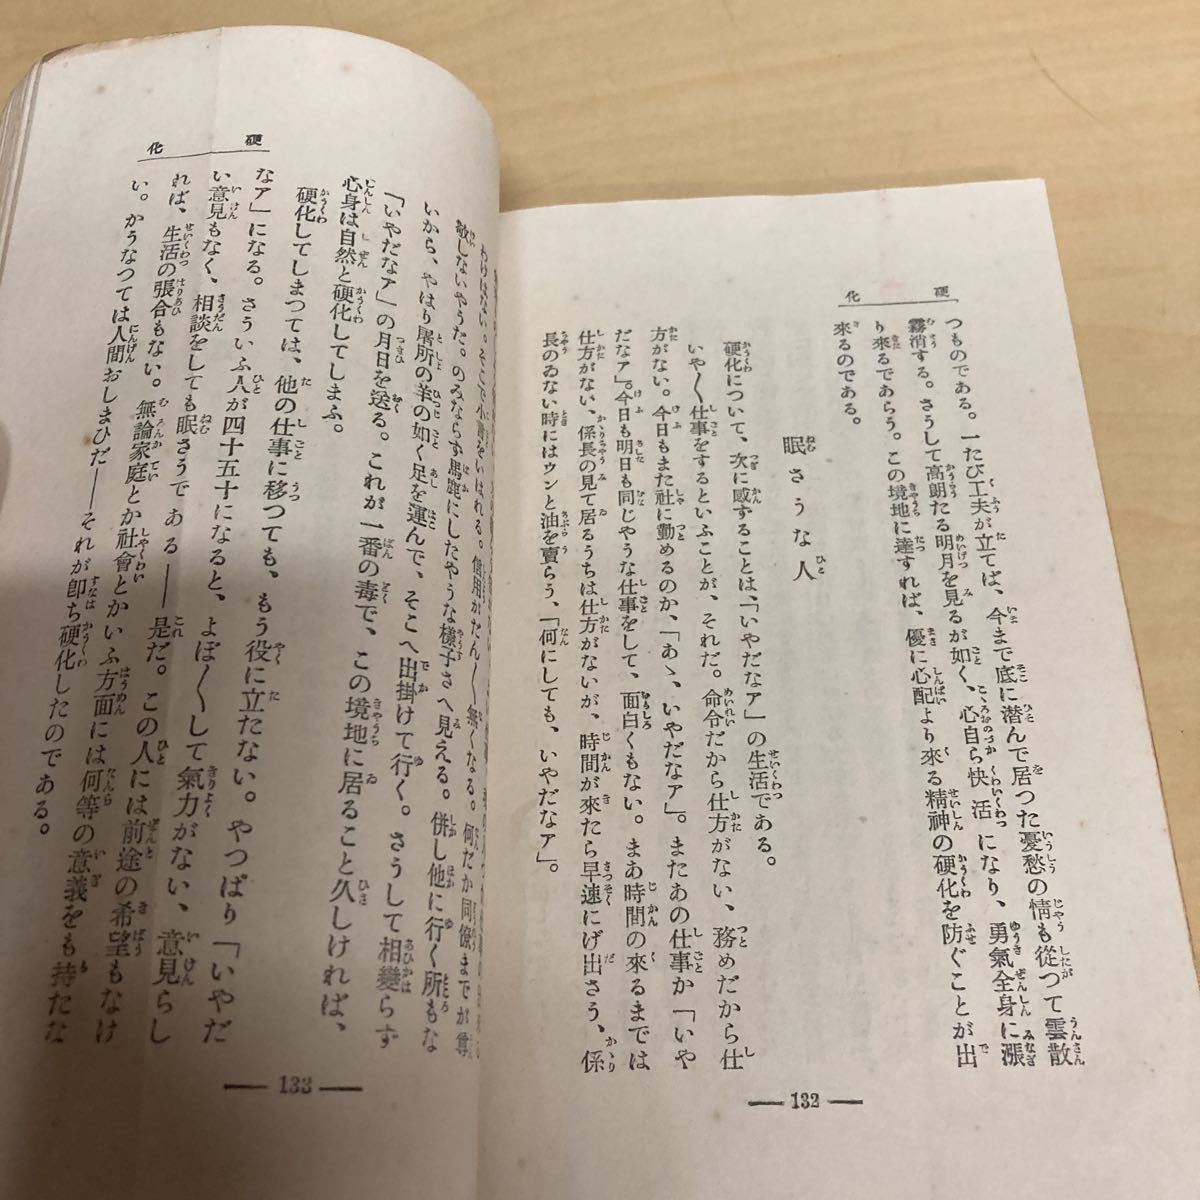 硬化
つものである。一たび工夫が立てば、今まで底に潜んで居つた憂愁の情も從つて雲散
霧消する。さうして高朗たる明月を見るが如く、心自ら快活になり、勇氣全身に漲
り來るであらう。この境地に達すれば、優に心配より來る精神の硬化を防ぐことが出
來るのである。
眠さうな人
硬化について、次に感ずることは、「いやだなァ」の生活である。
いや〱仕事をするといふことが、それだ。命令だから仕方がない、務めだから仕
方がない。今日もまた社に勤めるのか、「あゝ、いやだなァ」。またあの仕事か「いや
だなァ」。今日も明日も同じやうな仕事をして、面白くもない。まあ時間の來るまでは
仕方がない、係長の見て居るうちは仕方がないが、時間が來たら早速にげ出さう、係
長のゐない時にはウンと油を賣らう、「何にしても、いやだなァ」。
132
硬化
わけはない。そこで小言をいはれる。信用がだん〱無くなる。何だか同僚までが尊
敬しないやうだ。のみならず馬鹿にしたやうな樣子さへ見える。併し他に行く所もな
いから、やはり屠所の羊の如く足を運んで、そこへ出掛けて行く。さうして相變らず
「いやだなァ」の月日を送る。これが一番の毒で、この境地に居ること久しければ、
心身は自然と硬化してしまふ。
硬化してしまつては、他の仕事に移つても、もう役に立たない。やつぱり「いやだ
なァ」になる。さういふ人が四十五十になると、よぼ〱して氣力がない、意見らし
い意見もなく、相談をしても眠さうである――是だ。この人には前途の希望もなけ
れば、生活の張合もない。無論家庭とか社會とかいふ方面には何等の意義をも持たな
い。かうなつては人間おしまひだ――それが卽ち硬化したのである。
133